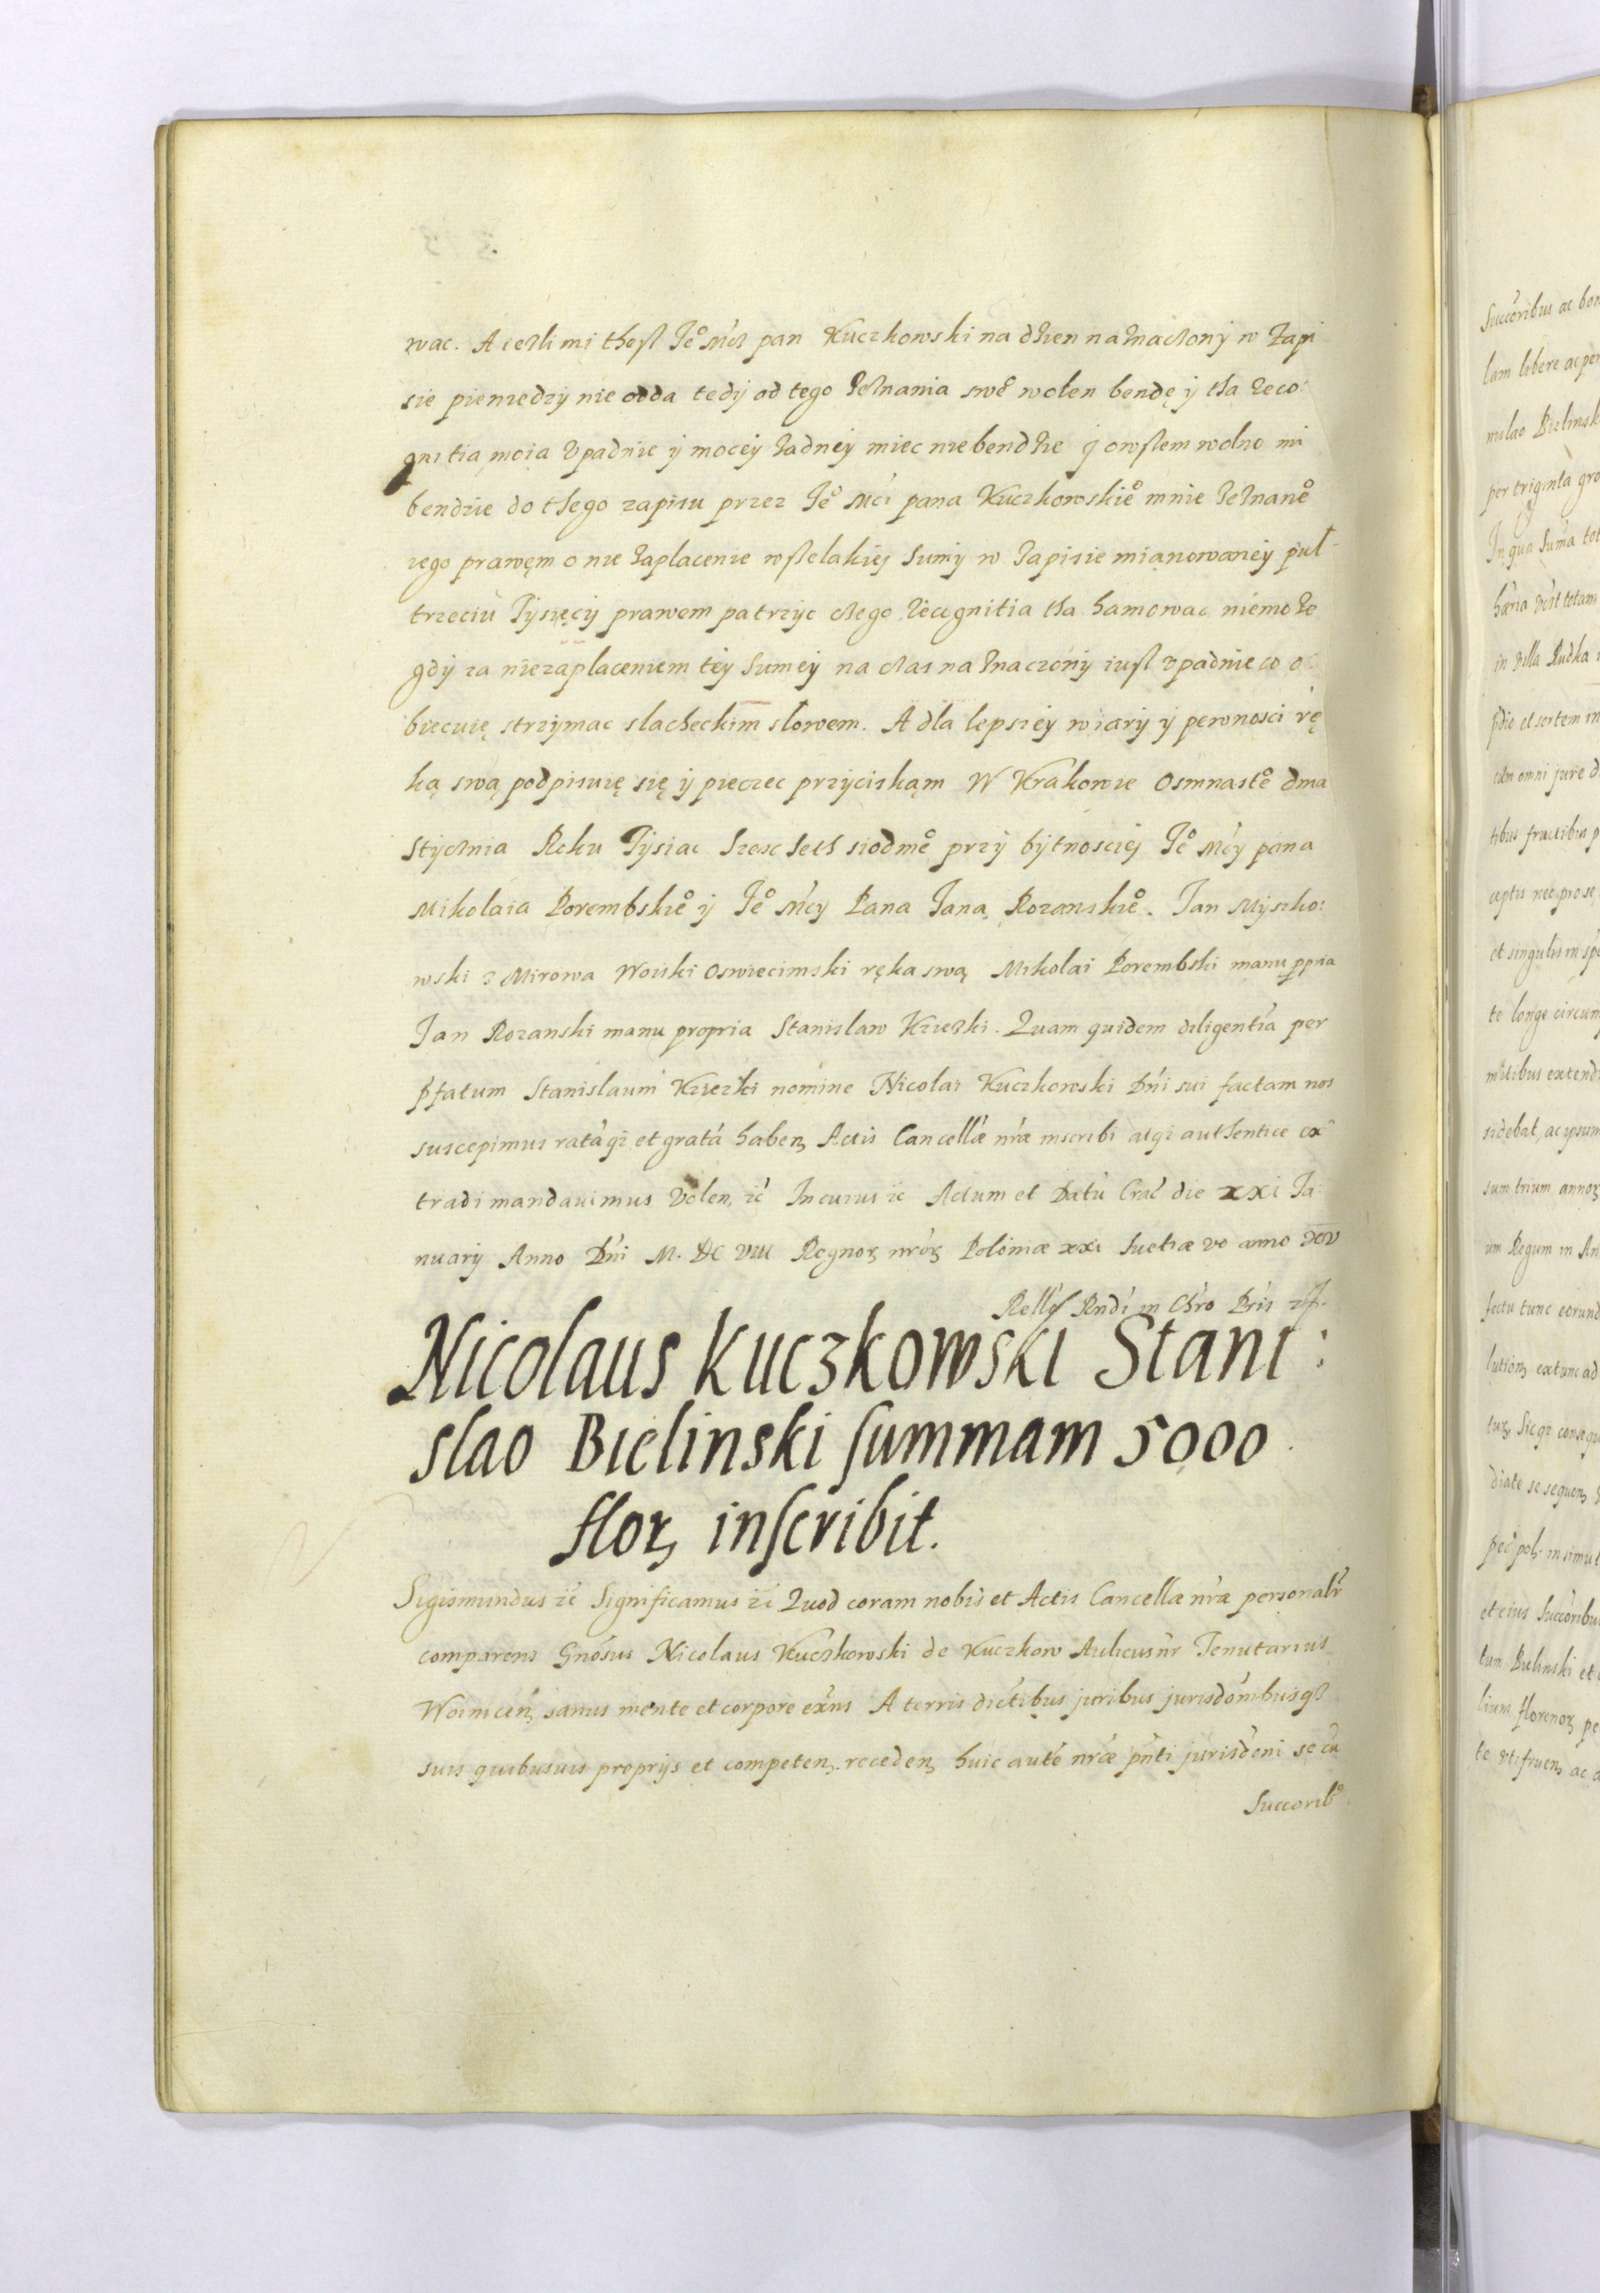 wac. A iezli mi thesz Je° Mcz pan Kuczkowski na dzien naznaczony w Zapi
sie pieniedzy nie odda tedy od tego zeznania swe° wolen bendę y tha reco:
gnitia moia upadnie y mocey zadney miec niebendzie y owszem wolno mi
bendzie do thego zapisu przez Je° Mci pana Kuczkowskie° mnie zeznane°
iego prawem o nie zaplacenie wszelakiey Sumy w zapisie mianowaney pul
trzeciu Tysięcy prawem patrzyc czego recognitia tha hamowac niemoze
gdy za niezaplaceniem tey Sumey na czas naznaczony iusz upadnie co o
biecuię strzymac slacheckim slowem. A dla lepszey wiary y pewnosci rę
ką swą podpisuię się y pieczec przyciskąm W Krakowie Osmnaste° dnia
Stycznia Roku Tysiac Szesc Seth siodme° przy bytnosciej Je° Mcy pana
Mikolaia Porembskie° y Je° Mcy Pana Jana Rozanskie°. Jan Myszko:
wski z Mirowa Woiski Oswiecimski ręka swą Mikolai Porembski manu ppria
Jan Rozanski manu propria Stanislaw Krzezki. Quam quidem diligentia per
pfatum Stanislaum Krzezki nomine Nicolai Kuczkowski Dni sui factam nos
suscepimus ratāqz et gratā haben Actis Cancellæ nræ inscribi atqz authentice ex
tradi mandavimus volen, zc Incuius zc Actum et Datū Crac die xxi Ja
nuarij Anno Dni M. DC VIII Regnoꝝ nroꝝ Poloniæ xxi Suetiæ vo anno xv
Rndi in Chro Pris
Nicolaus Kuczkowski Stani:
slao Bielinski summam 5000
floꝝ inscribit.
Sigismundus zc Significamus zc Quod coram nobis et Actis Cancellæ nræ personalr
comparens Gnosus Nicolaus Kuczkowski de Kuczkow Aulicus nr Tenutarius
Woinicen, sanus mente et corpore exns A terris dictibus juribus jurisdonibusqz
suis quibusuis proprijs et competen, receden, huic autē nræ pnti jurisdoni se cū
Succorib°